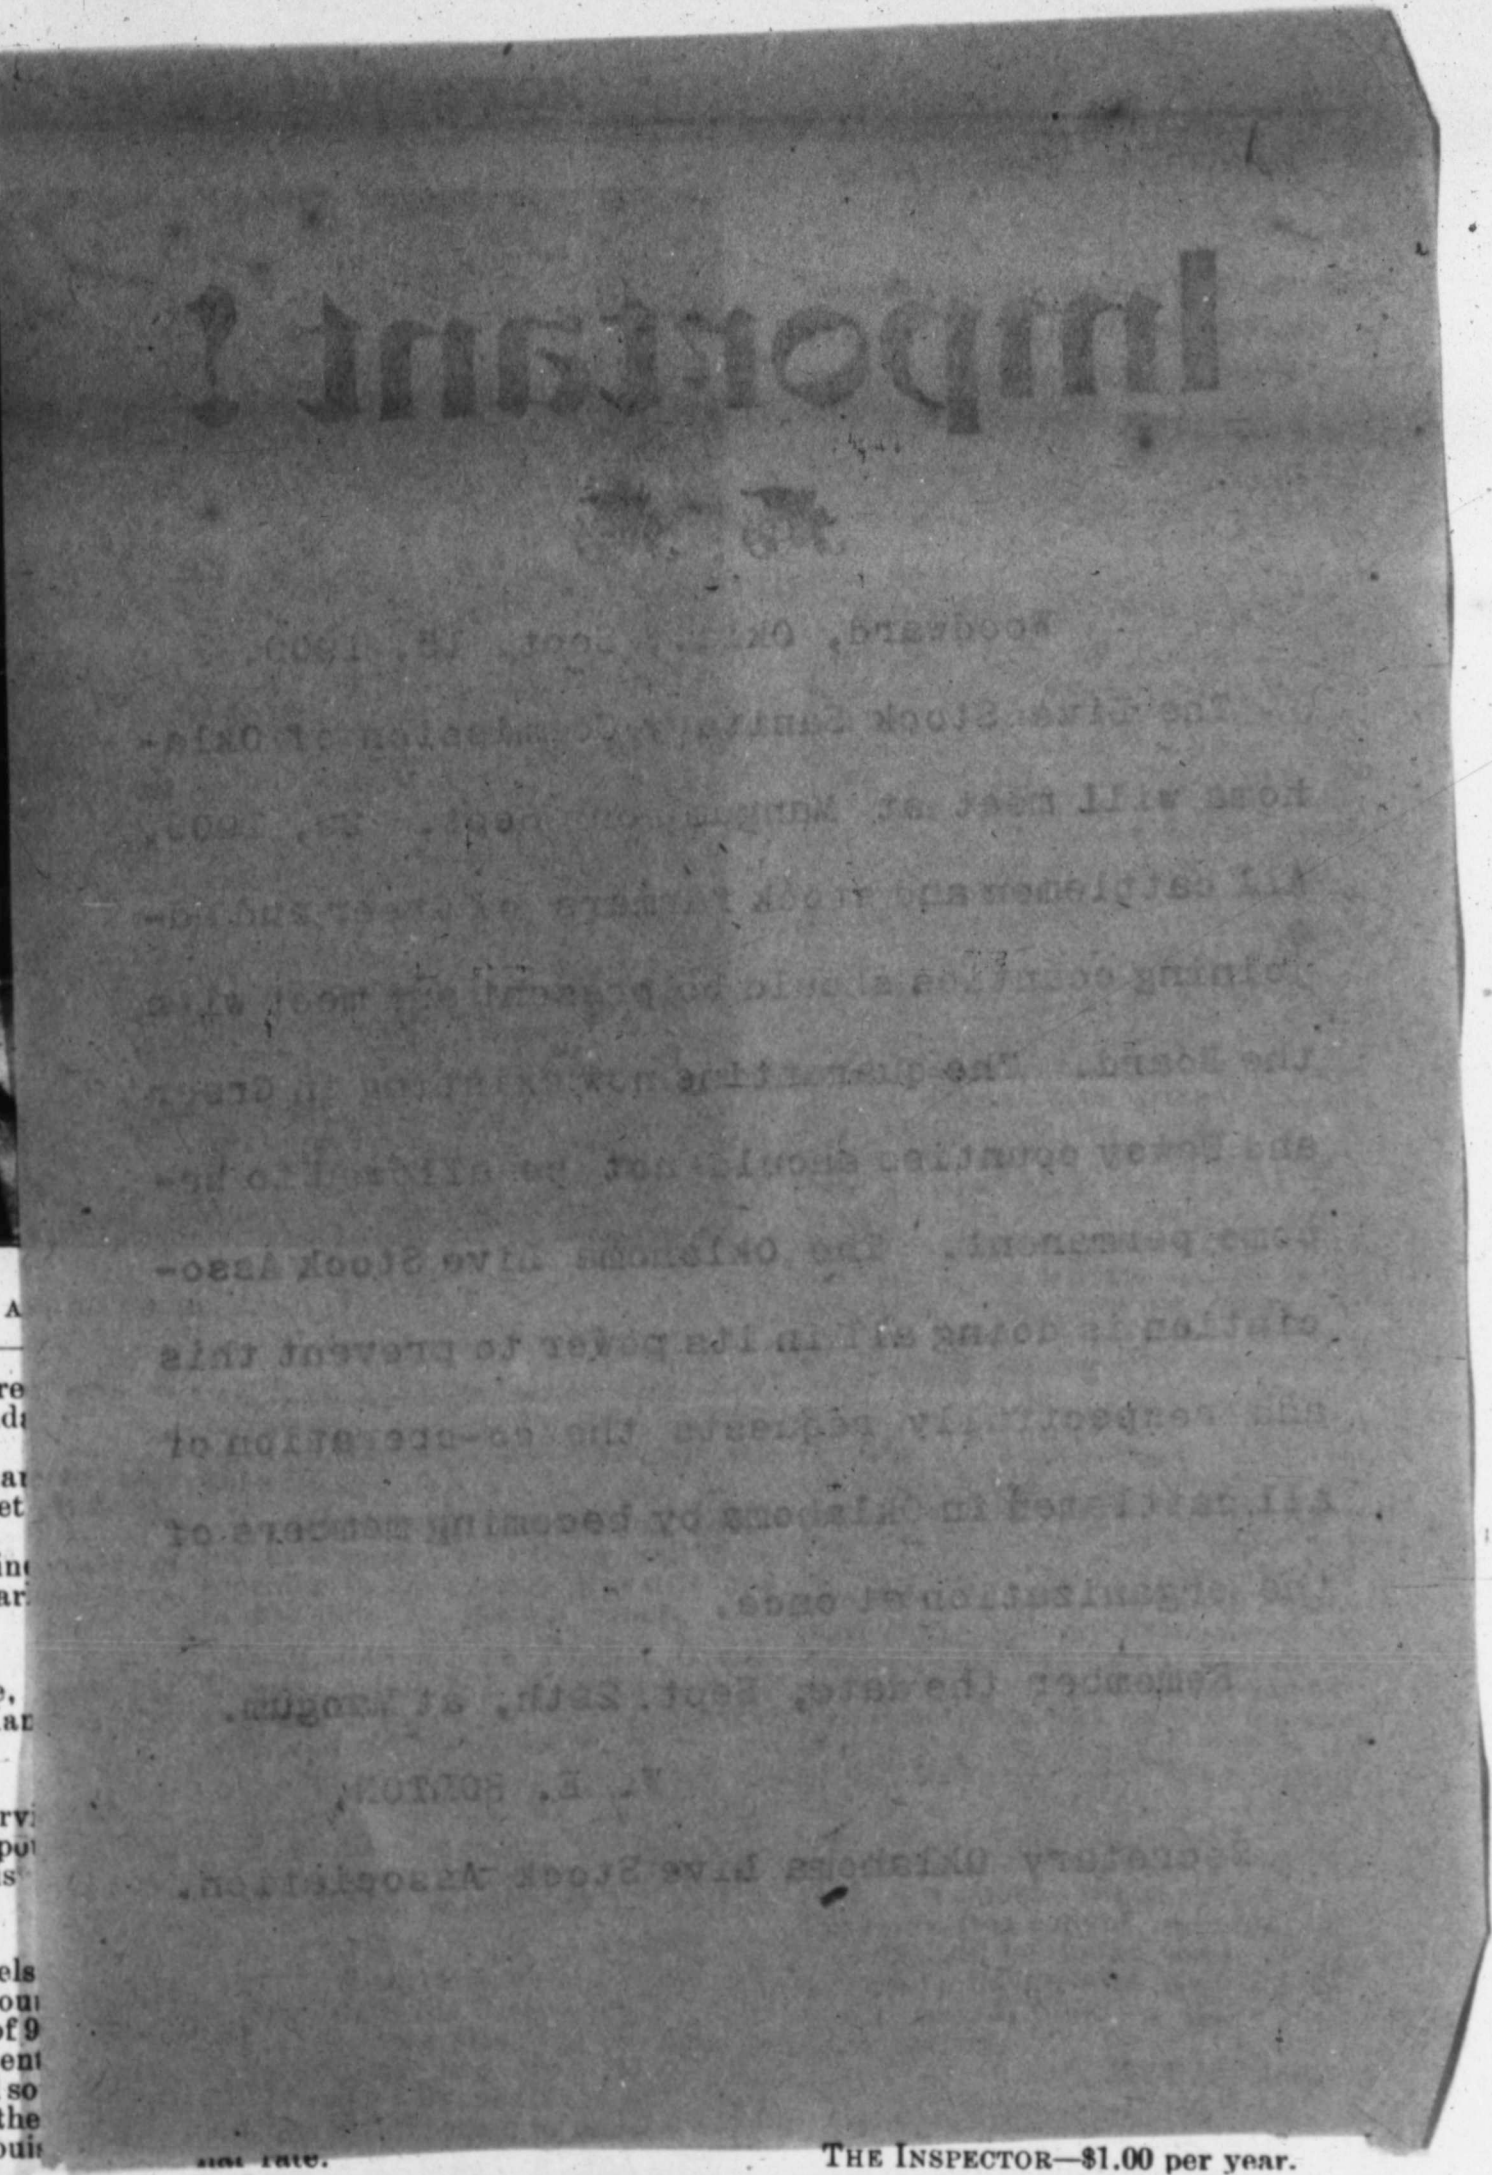 Important!
Woodward, Okla., Sept. 15, 1900.
The Live Stock Sanitary Commission of Okla-
homa will meet at Mangum on Sept. 1900.
All cattlemen and stock farmers of Greer and ad-
joining counties should be present and meet with
the Board. The quarantine now existing in Greer
and Dewey counties should not be allowed to be-
come permanent. The Oklahoma Live Stock Asso-
ciation is doing all in its power to prevent this
and respectfully requests the co-operation of
All cattlemen in Oklahoma by becoming members of
the organization at once.
Remember the date, Sept. at Mangum.
W. E. BOLTON,
Secretary Oklahoma Live Stock Association.
A
re
ar
et
of 9
ent
so
the
rate.
THE INSPECTOR—$1.00 per year.